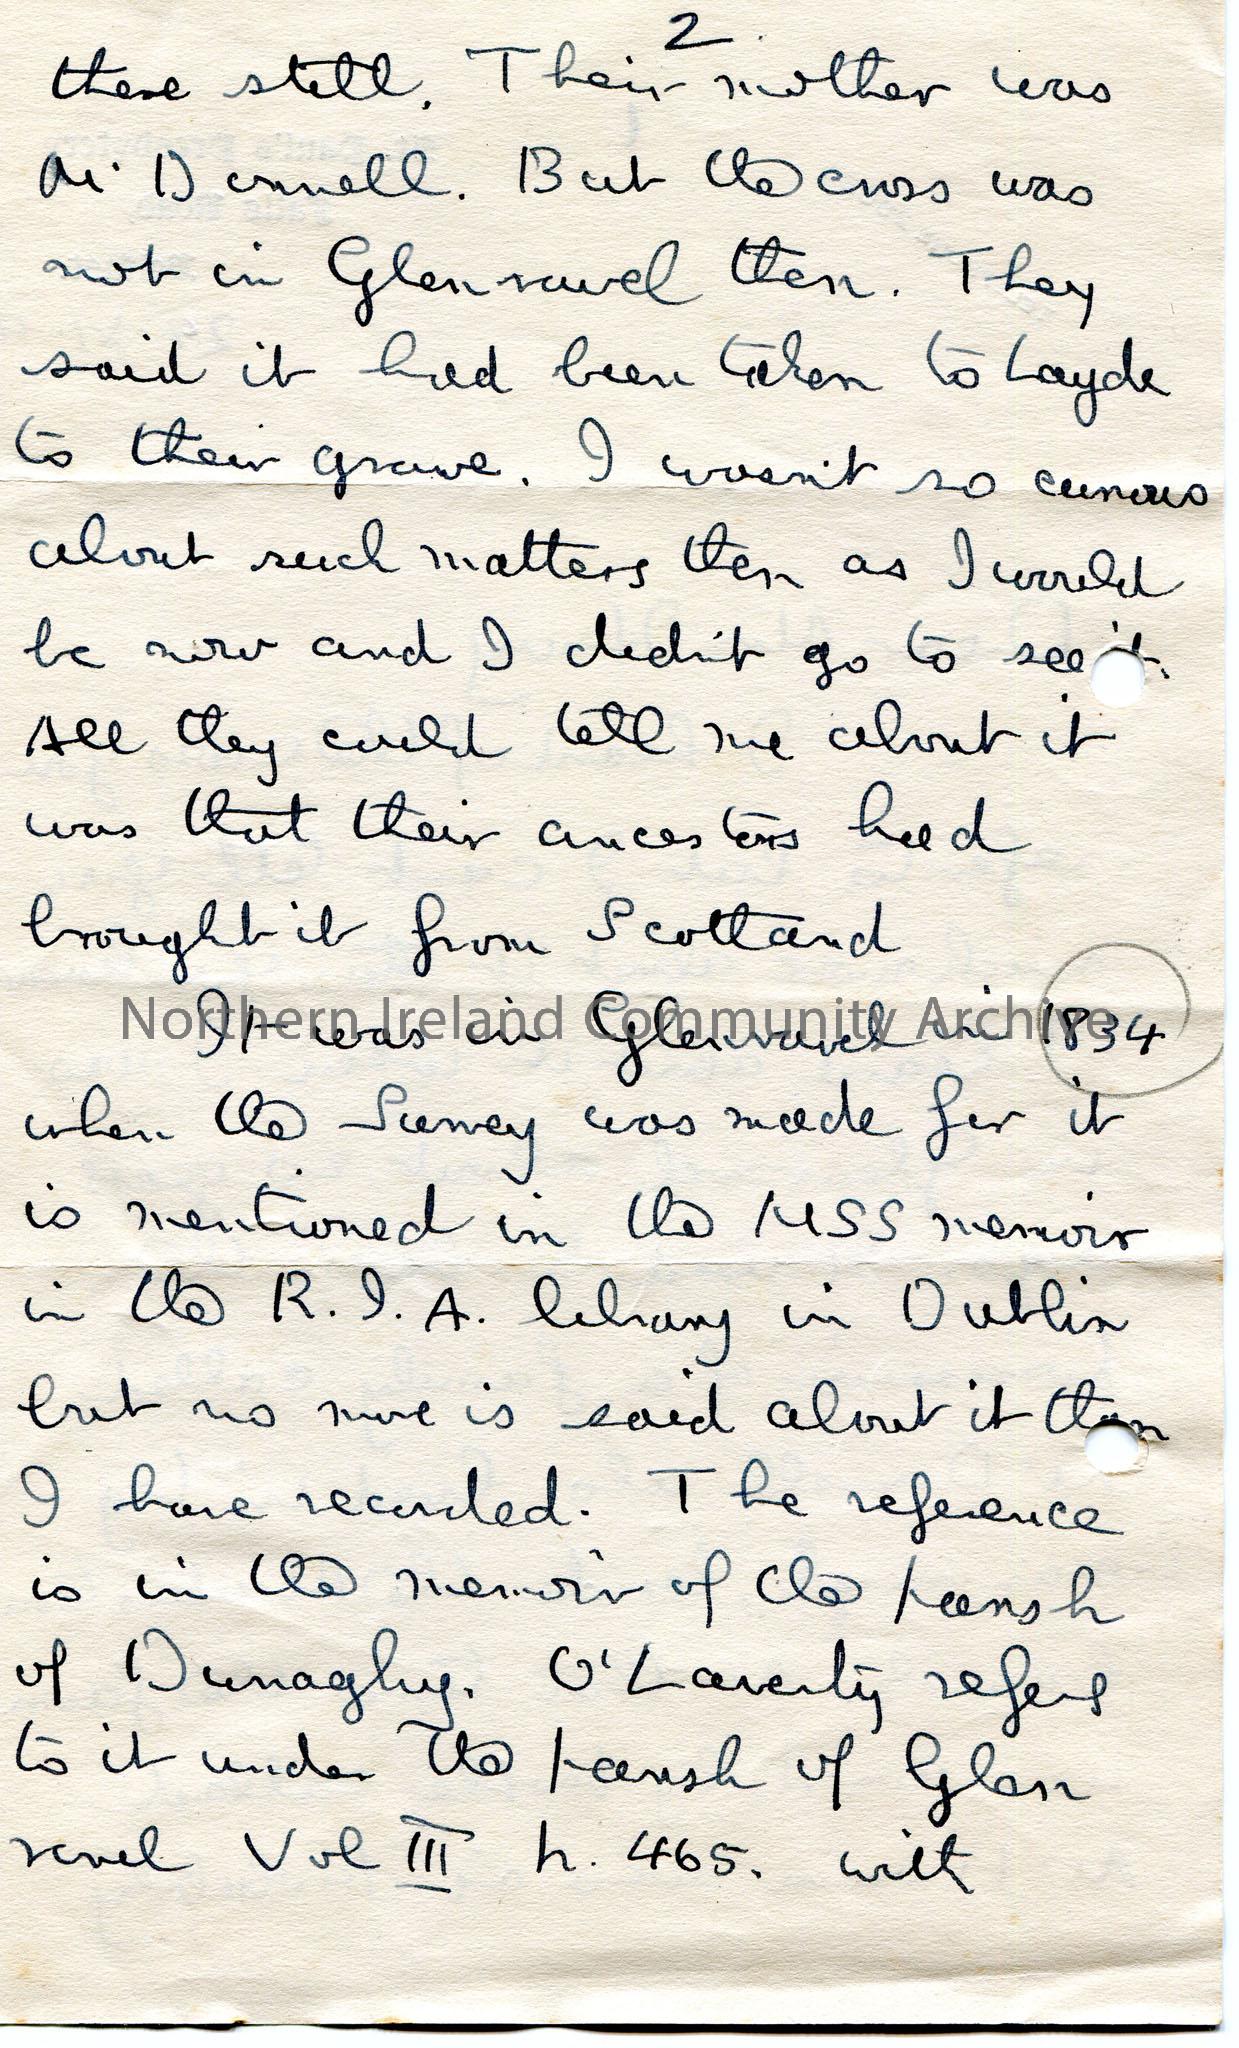 2.
there still. Their mother was
Mc Donnell. But the cross was
not in Glenravel then. They
said it had been taken to Layde
to their grave. I wasn't so curious
about such matters then as I would
be now and I didn't go to see it.
All they could tell me about it
was that their ancestors had
brought it from Scotland
It was in Glenravel in 1834
Northern Ireland Community Archive
when the Survey was made for it
is mentioned in the MSS memoir
in the R.I.A. library in Dublin
but no more is said about it than
I have recorded. The reference
is in the memoir of the parish
of Dunaghy. O'Laverty refers
to it under the parish of Glen
ravel Vol III p. 465. with